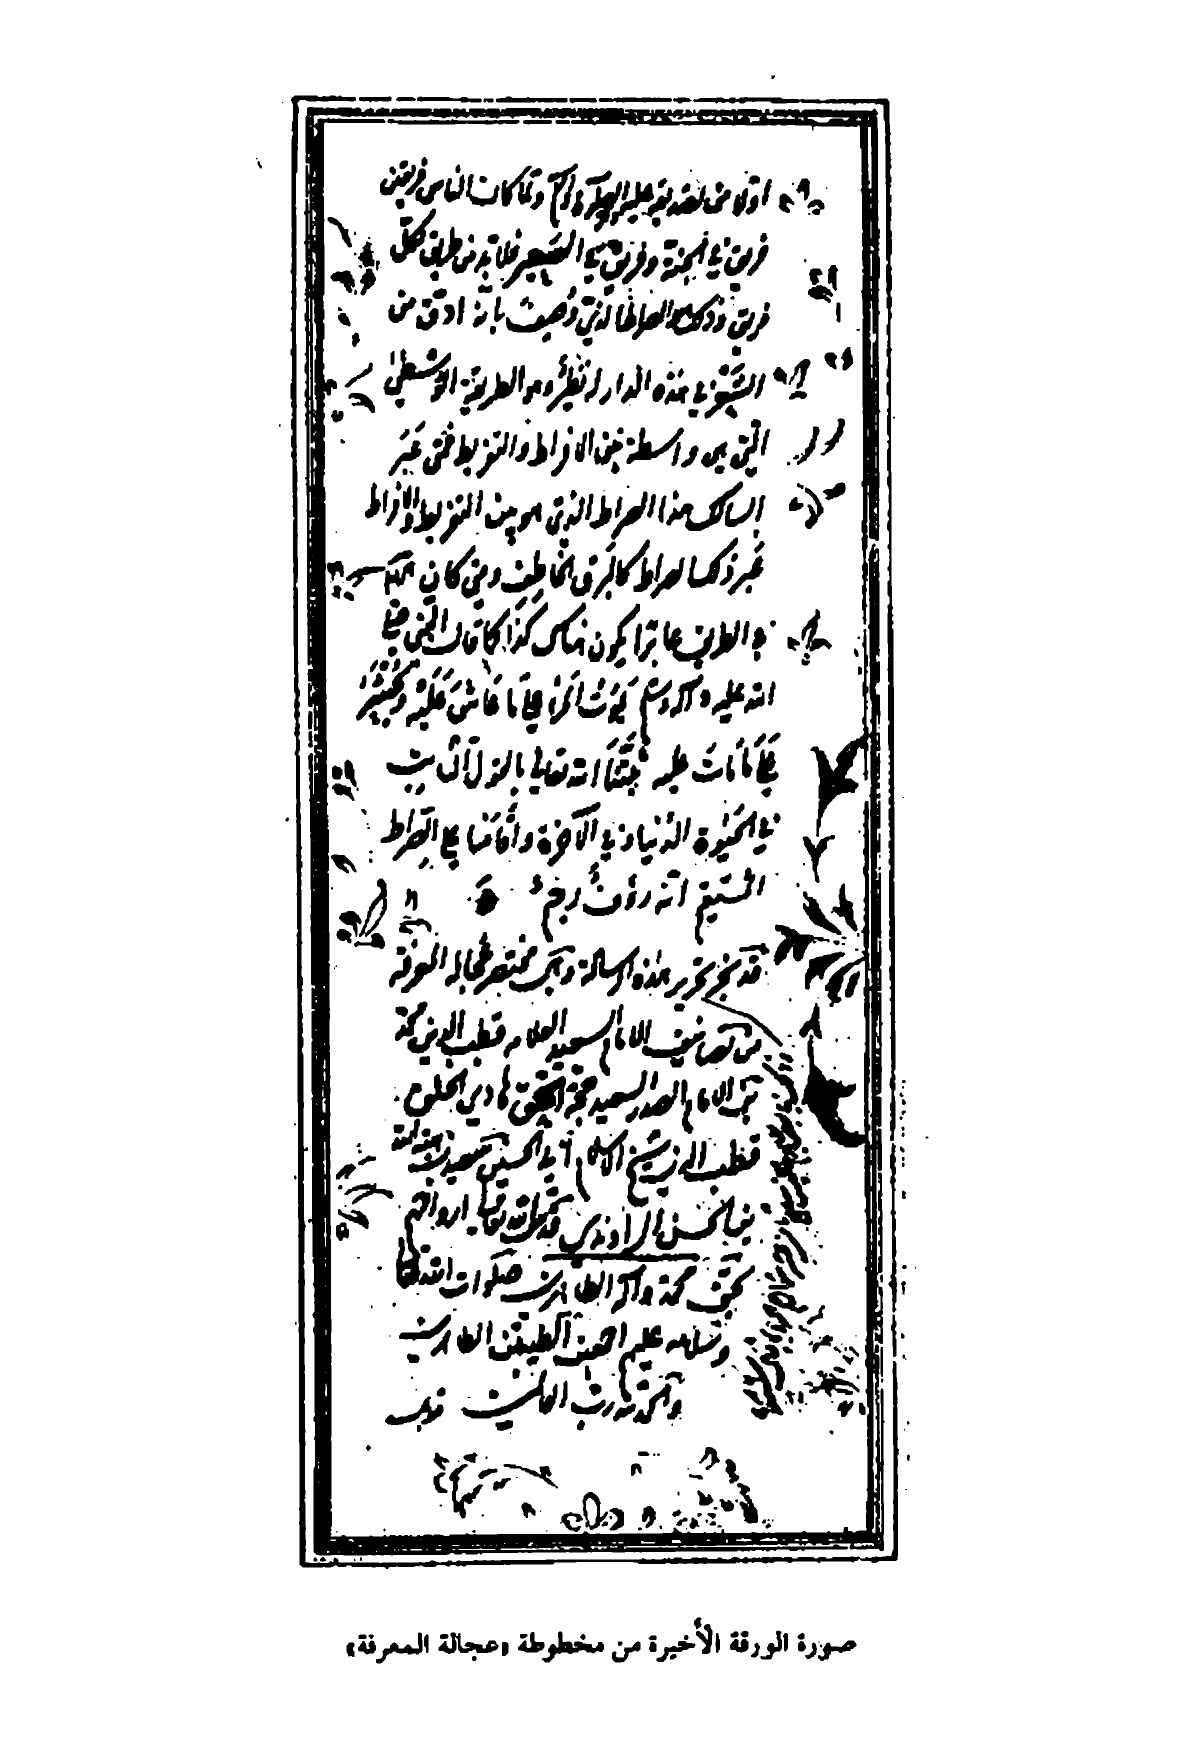 اولا من تصديقه عليه الصلوة والسلام ولما كان الناس فريقين
فريق في الجنة وفريق في السعير فلا بد من طريق لكل
فريق وذلك هو الصراط الذي وُصِفَ بأنه ادق من
الشَّعْر في هذه الدار له نظير وهو الطريقة الوُسْطىٰ
التي هي واسطة بين الافراط والتفريط فمن عَبَرَ
السالك هذا الصراط الذي هو بين التفريط والافراط
عَبَرَ ذلك الصراط كالبرق الخاطف ومن كان
في الطريق عاثرا يكون هناك كذا كما قال النبي صلى
الله عليه وآله وسلم يَمُوتُ المرءُ على مَا عَاشَ عَلَيْهِ وَيُحْشَرُ
عَلى مَا مَاتَ عليه ثبَّتَنَا الله تعالى بالقول الثابت
في الحيوة الدنيا وفي الآخرة وأقامنا على الصراط
المستقيم انه رؤف رحيم
قد نجز تحرير هذه الرسالة وهي مختصر عجالة المعرفة
من تصانيف الامام السعيد العلام قطب الدين محمد
بن الامام الصدر السعيد حجة الحق هادي الخلق
قطب الدين شيخ الاسلام أبي الحسين سعيد بن هبة الله
بن الحسن الراوندي قدس الله تعالى ارواحهم
بحق محمد وآله الطاهرين صلوات الله تعالى
وسلامه عليهم اجمعين الطيبين الطاهرين
والحمد لله رب العالمين
صورة الورقة الأخيرة من مخطوطة «عجالة المعرفة»